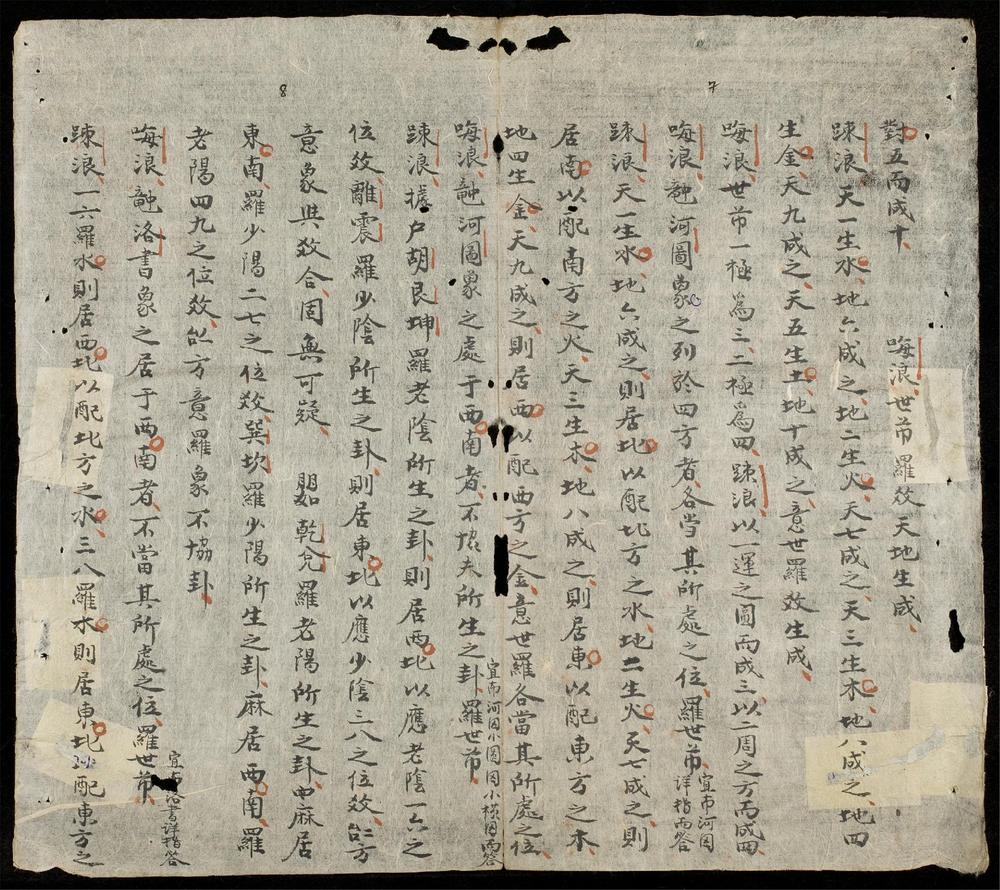 對五而成十　嗨浪世芇羅效天地生成
踈浪天一生水地六成之地二生火天七成之天三生木地八成之地四
生金天九成之天五生土地十成之意世羅效生成
嗨浪世芇一極爲三二極爲四踈浪以一運之圓而成三以二周之方而成四
嗨浪河圖象之列於四方者各當其所處之位羅世芇宜市河图詳指両答
踈浪天一生水地六成之則居北以配北方之水地二生火天七成之則
居南以配南方之火天三生木地八成之則居東以配東方之木
地四生金天九成之則居西以配西方之金意世羅各當其所處之位
嗨浪河圖象之處于西南者不協夫所生之卦羅世芇宜市河图小圆图小横图両答
踈浪據户胡艮坤羅老陰所生之卦則居西北以應老陰一六之
位效離震羅少陰所生之卦則居東北以應少陰三八之位效方
意象與效合固無可疑　乾兌羅老陽所生之卦麻居
東南羅少陽二七之位效巽坎羅少陽所生之卦麻居西南羅
老陽四九之位效方意羅象不協卦
嗨浪洛書象之居于西南者不當其所處之位羅世芇宜市洛書詳指答
踈浪一六羅水則居西北以配北方之水三八羅木則居東北以配東方之
7
8